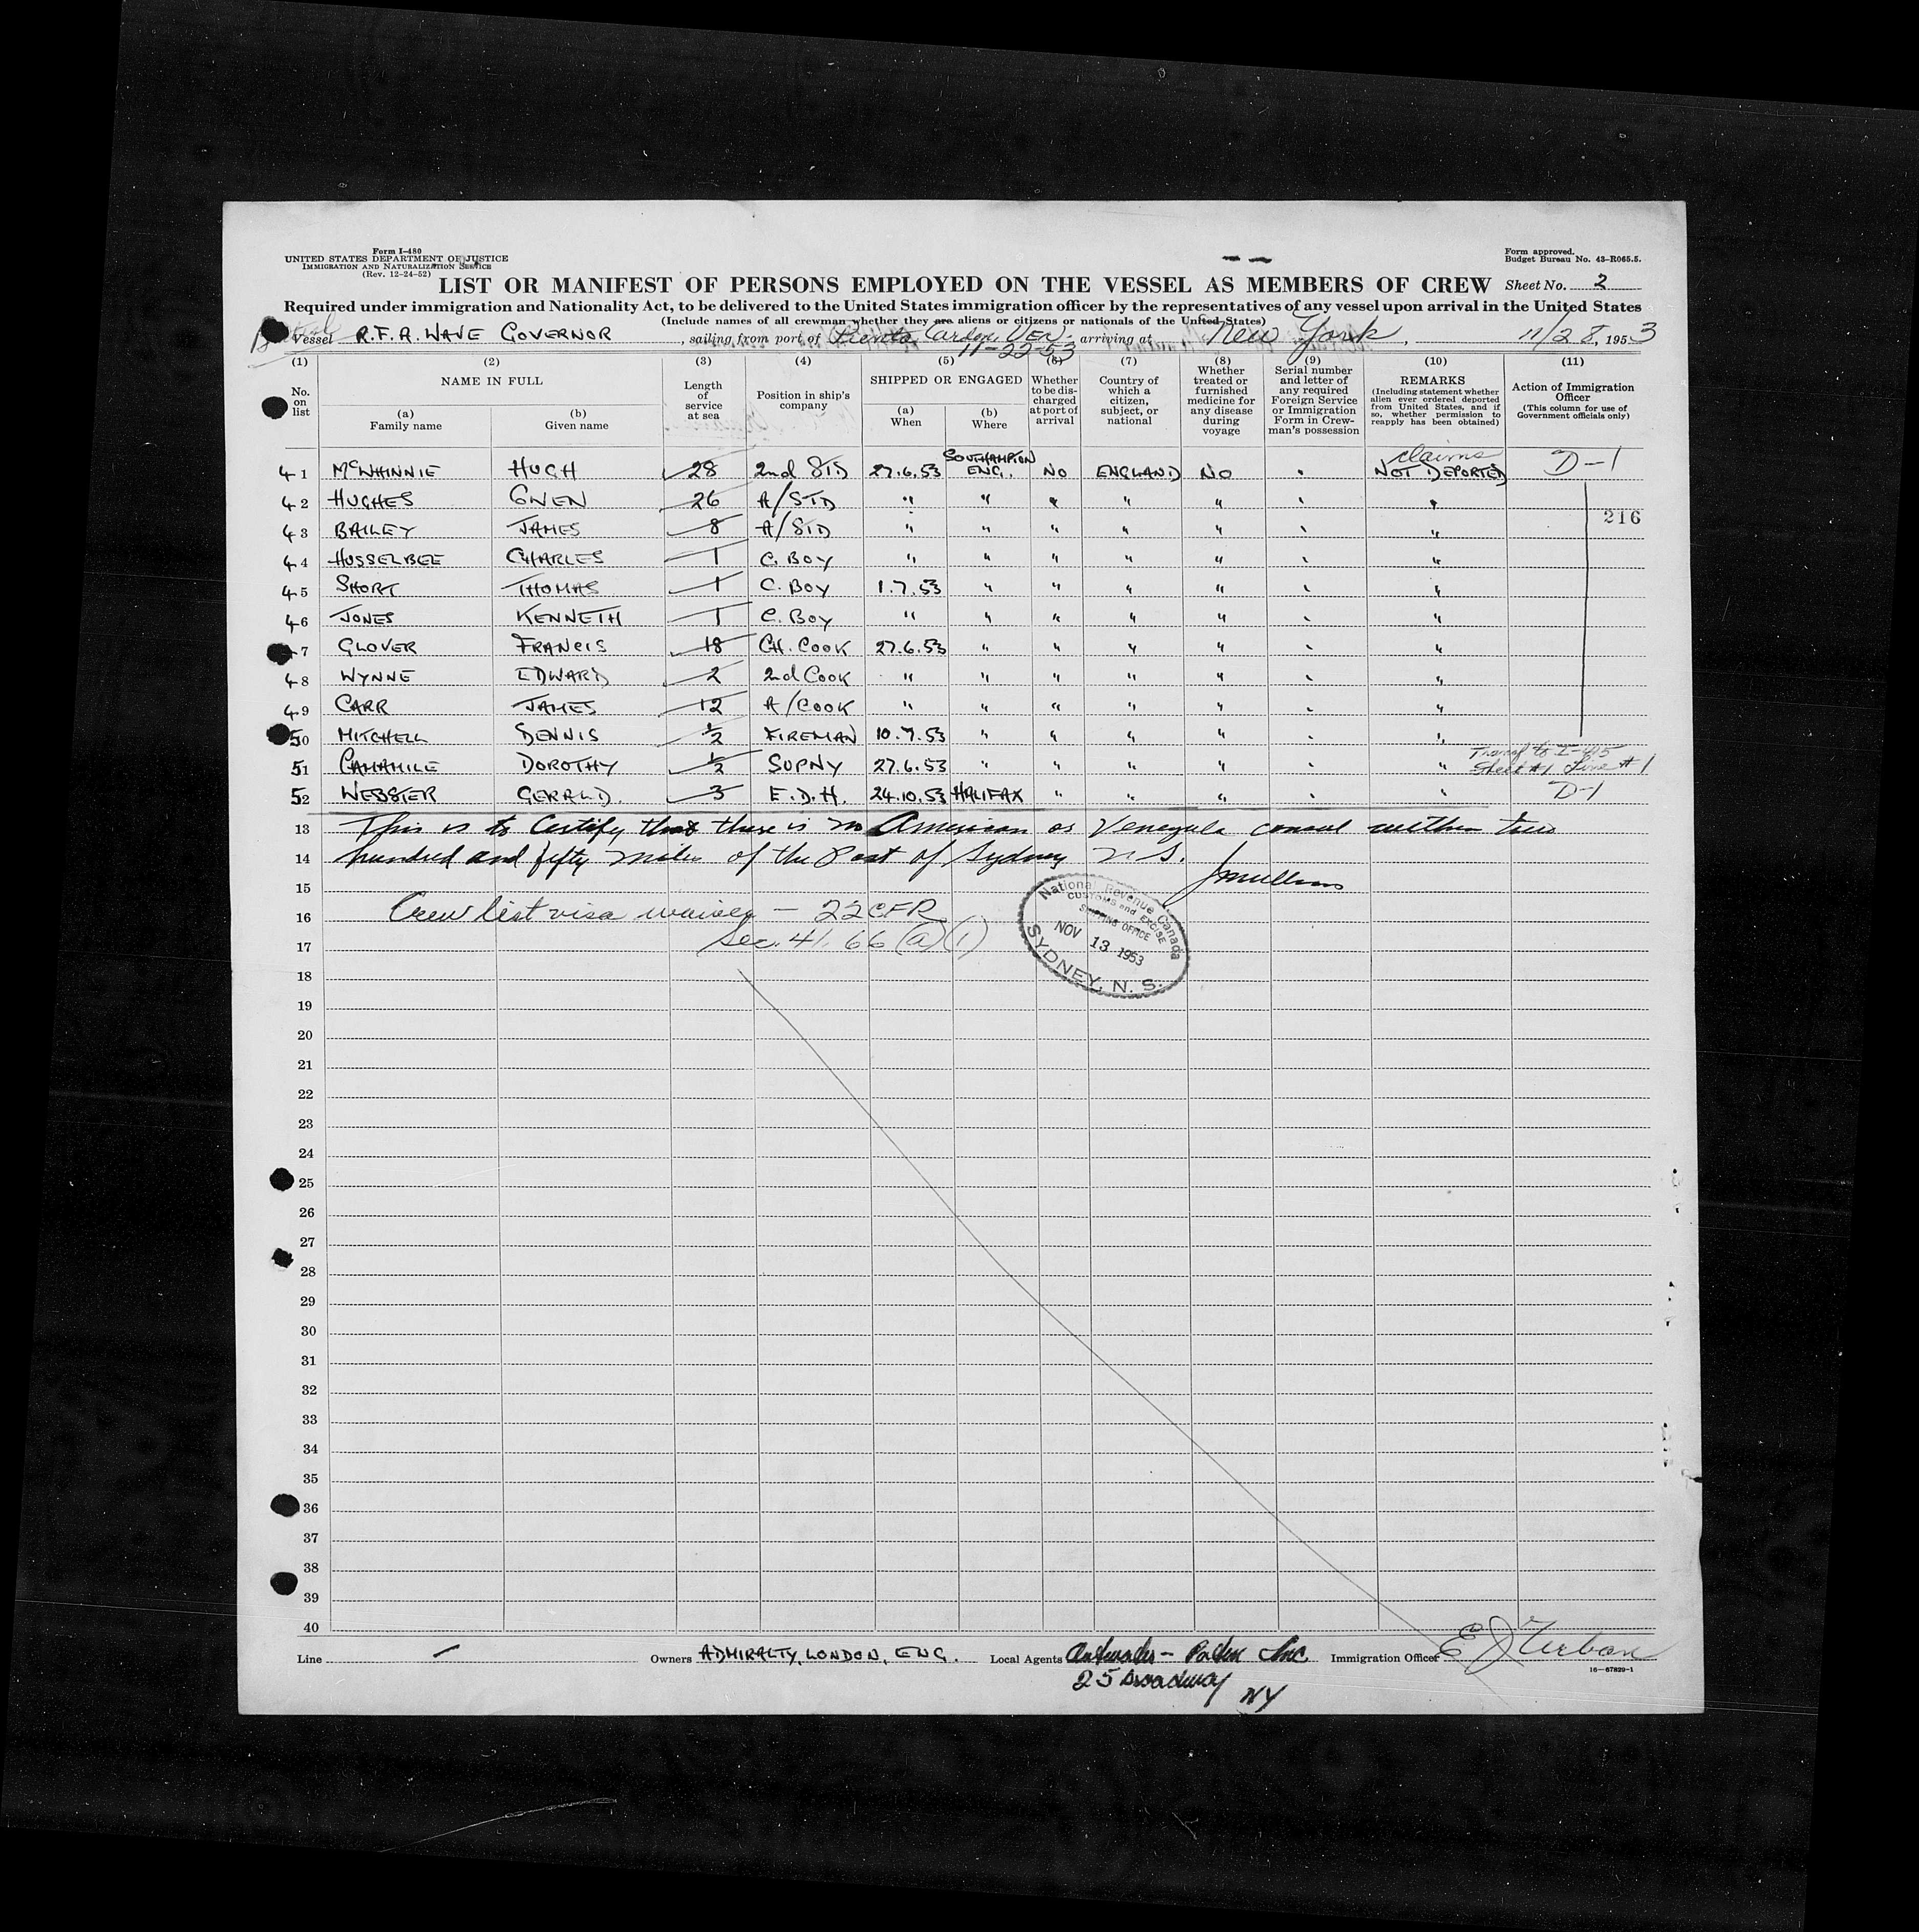 Form I-480
UNITED STATES DEPARTMENT OF JUSTICE
IMMIGRATION AND NATURALIZATION SERVICE
(Rev. 12-24-52)
Form approved.
Budget Bureau No. 43-R065.5.
LIST OR MANIFEST OF PERSONS EMPLOYED ON THE VESSEL AS MEMBERS OF CREW Sheet No. 2
Required under immigration and Nationality Act, to be delivered to the United States immigration officer by the representatives of any vessel upon arrival in the United States
(Include names of all crewman whether they are aliens or citizens or nationals of the United States)
Vessel R.F.A. WAVE GOVERNOR, sailing from port of Puerto Cardon, VEN. arriving at New York, 11/28, 1953
11-22-53
(1) (2) (3) (4) (5) (6) (7) (8) (9) (10) (11)
No. on list
NAME IN FULL
(a) Family name
(b) Given name
Length of service at sea
Position in ship's company
SHIPPED OR ENGAGED
(a) When
(b) Where
Whether to be discharged at port of arrival
Country of which a citizen, subject, or national
Whether treated or furnished medicine for any disease during voyage
Serial number and letter of any required Foreign Service or Immigration Form in Crewman's possession
REMARKS
(Including statement whether alien ever ordered deported from United States, and if so, whether permission to reapply has been obtained)
Action of Immigration Officer
(This column for use of Government officials only)
41 McWHINNIE HUGH 28 2nd STD 27.6.53 SOUTHAMPTON ENG. NO ENGLAND NO " claims NOT DEPORTED D-1
42 HUGHES GWEN 26 A/STD " " " " " " "
216
43 BAILEY JAMES 8 A/STD " " " " " " "
44 HUSSELBEE CHARLES 1 C. BOY " " " " " " "
45 SHORT THOMAS 1 C. BOY 1.7.53 " " " " " "
46 JONES KENNETH 1 C. BOY " " " " " " "
47 GLOVER FRANCIS 18 CH. COOK 27.6.53 " " " " " "
48 WYNNE EDWARD 2 2nd COOK " " " " " " "
49 CARR JAMES 12 A/COOK " " " " " " "
50 MITCHELL DENNIS ½ FIREMAN 10.7.53 " " " " " "
51 CAMAMILE DOROTHY ½ SUPNY 27.6.53 " " " " " " Transf to I-415 Sheet #1 Line #1
52 WEBSTER GERALD. 3 E.D.H. 24.10.53 HALIFAX " " " " " D-1
13 This is to Certify that there is no American or Venezula consul within two
14 hundred and fifty miles of the Port of Sydney N.S.
15
16 Crew list visa waived - 22CFR
17 Sec. 41.66 (a)(1)
National Revenue Canada
CUSTOMS and EXCISE
SHIPPING OFFICE
NOV 13 1953
SYDNEY, N. S.
18
19
20
21
22
23
24
25
26
27
28
29
30
31
32
33
34
35
36
37
38
39
40
Line Owners ADMIRALTY, LONDON, ENG. Local Agents Inc Immigration Officer E J Urban
25 Broadway NY
16-67829-1